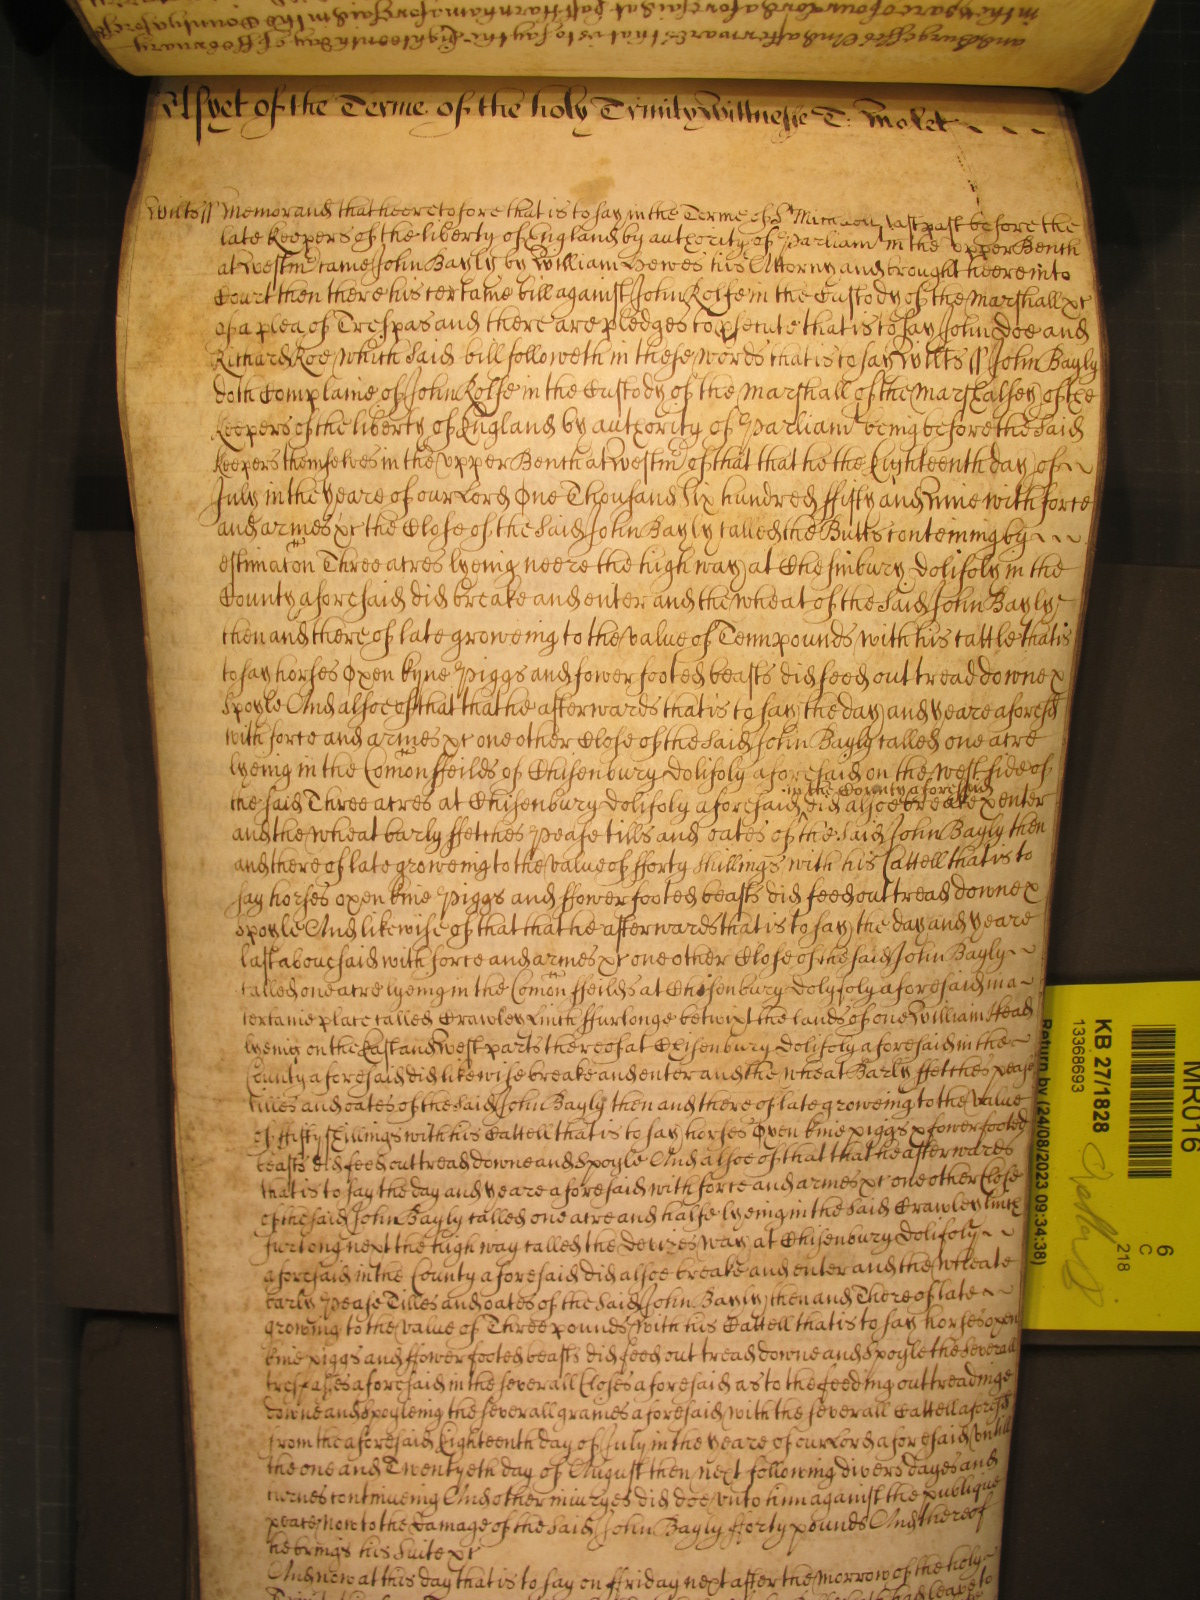 and Burgesses And afterwards that is to say the Eighteenth day of February
in the yeare of our Lord aforesaid at East Harnham aforesaid in the County aforesaid
As yet of the Terme of the holy Trinity Wittnesse T: Malet
Wilts ss Memorand that heeretofore that is to say in the Terme of St Michaell last past before the
late Keepers of the liberty of England by authority of Parliamt in the Upper Bench
at Westmr came John Bayly by William Hewes his Attorny and brought heere into
Court then there his certaine bill against John Rolfe in the Custody of the Marshall &c
of a plea of Trespas and there are pledges to psecute that is to say John Doe and
Richard Roe which said bill followeth in these words that is to say Wilts ss John Bayly
doth Complaine of John Rolfe in the Custody of the Marshall of the Marshalsey of the
Keepers of the liberty of England by authority of Parliamt being before the said
Keepers themselves in the Upper Bench at Westmr of that that he the Eighteenth day of
July in the yeare of our Lord One Thousand six hundred ffifty and Nine with force
and armes &c the Close of the said John Bayly called the Butts conteining by
estimacon Three acres lyeing neere the high way at Chesinbury dolifoly in the
County aforesaid did breake and enter and the wheat of the said John Bayly
then and there of late groweing to the value of Tenn pounds with his cattle that is
to say horses Oxen kyne Piggs and fower footed beasts did feed out tread downe &
spoyle And alsoe of that that he afterwards that is to say the day and yeare aforesd
with force and armes &c one other Close of the said John Bayly called one acre
lyeing in the Comon ffeilds of Chisenbury dolifoly aforesaid on the west side of
the said Three acres at Chisenbury dolifoly aforesaid in the County aforesaid did alsoe breake & enter
and the wheat barly ffetches pease tills and oates of the said John Bayly then
and there of late groweing to the value of fforty shillings with his Cattell that is to
say horses oxen kine Piggs and ffower footed beasts did feed out tread downe &
spoyle And likewise of that that he afterwards that is to say the day and yeare
last abovesaid with force and armes &c one other Close of the said John Bayly
called one acre lyeing in the Comon ffeilds at Chisenbury dolyfoly aforesaid in a
certaine place called Crawley Linch ffurlonge betwixt the lands of one William Head
lyeing on the East and West parts thereof at Chisenbury dolifoly aforesaid in the
County aforesaid did likewise breake and enter and the wheat Barly ffetches pease
tilles and oates of the said John Bayly then and there of late groweing to the value
of ffifty shillings with his Cattell that is to say horses Oxen kine piggs & fower footed
beasts did feed out tread downe and spoyle And alsoe of that that he afterwards
that is to say the day and yeare aforesaid with force and armes &c one other Close
of the said John Bayly called one acre and halfe lyeing in the said Crawley linch
furlong next the high way called the Devizes way at Chisenbury dolifoly
aforesaid in the County aforesaid did alsoe breake and enter and the wheate
barly Pease Tilles and oates of the said John Bayly then and There of late
growing to the value of Three pounds with his Cattell that is to say horses oxen
kine piggs and ffower footed beasts did feed out tread downe and spoyle the severall
trespasses aforesaid in the severall Closes aforesaid as to the feeding out treadinge
downe and spoyleing the severall graines aforesaid with the severall Cattell aforesd
from the aforesaid Eighteenth day of July in the yeare of our Lord aforesaid untill
the one and Twentyeth day of August then next following divers dayes and
turnes continueing And other iniuryes did doe unto him against the publique
peace now to the damage of the said John Bayly fforty pounds And thereof
he brings his suite &c
And now at this day that is to say on ffriday next after the morrow of the holy
MR016
6
C
218
KB 27/1828
13368693
Return by (24/08/2023 09:34:38)